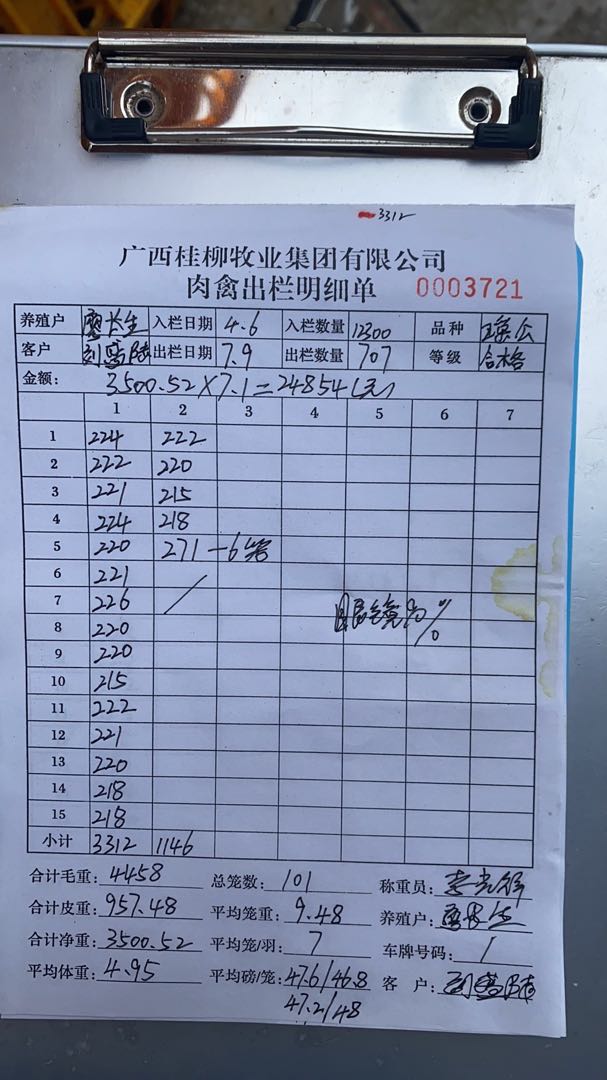 3312
广西桂柳牧业集团有限公司
肉禽出栏明细单 0003721
养殖户 廖长生 入栏日期 4.6 入栏数量 12300 品种
客户 出栏日期 7.9 出栏数量 707 等级 合格
金额: 3500.52×7.1=24854(元)
1 2 3 4 5 6 7
1 224 222
2 222 220
3 221 215
4 224 218
5 220 271-6笼
6 221
7 226
8 220
9 220
10 215
11 222
12 221
13 220
14 218
15 218
小计 3312 1146
合计毛重: 4458 总笼数: 101 称重员:
合计皮重: 957.48 平均笼重: 9.48 养殖户: 廖长生
合计净重: 3500.52 平均笼/羽: 7 车牌号码: /
平均体重: 4.95 平均磅/笼: 47.6/46.8 客户:
47.2/48